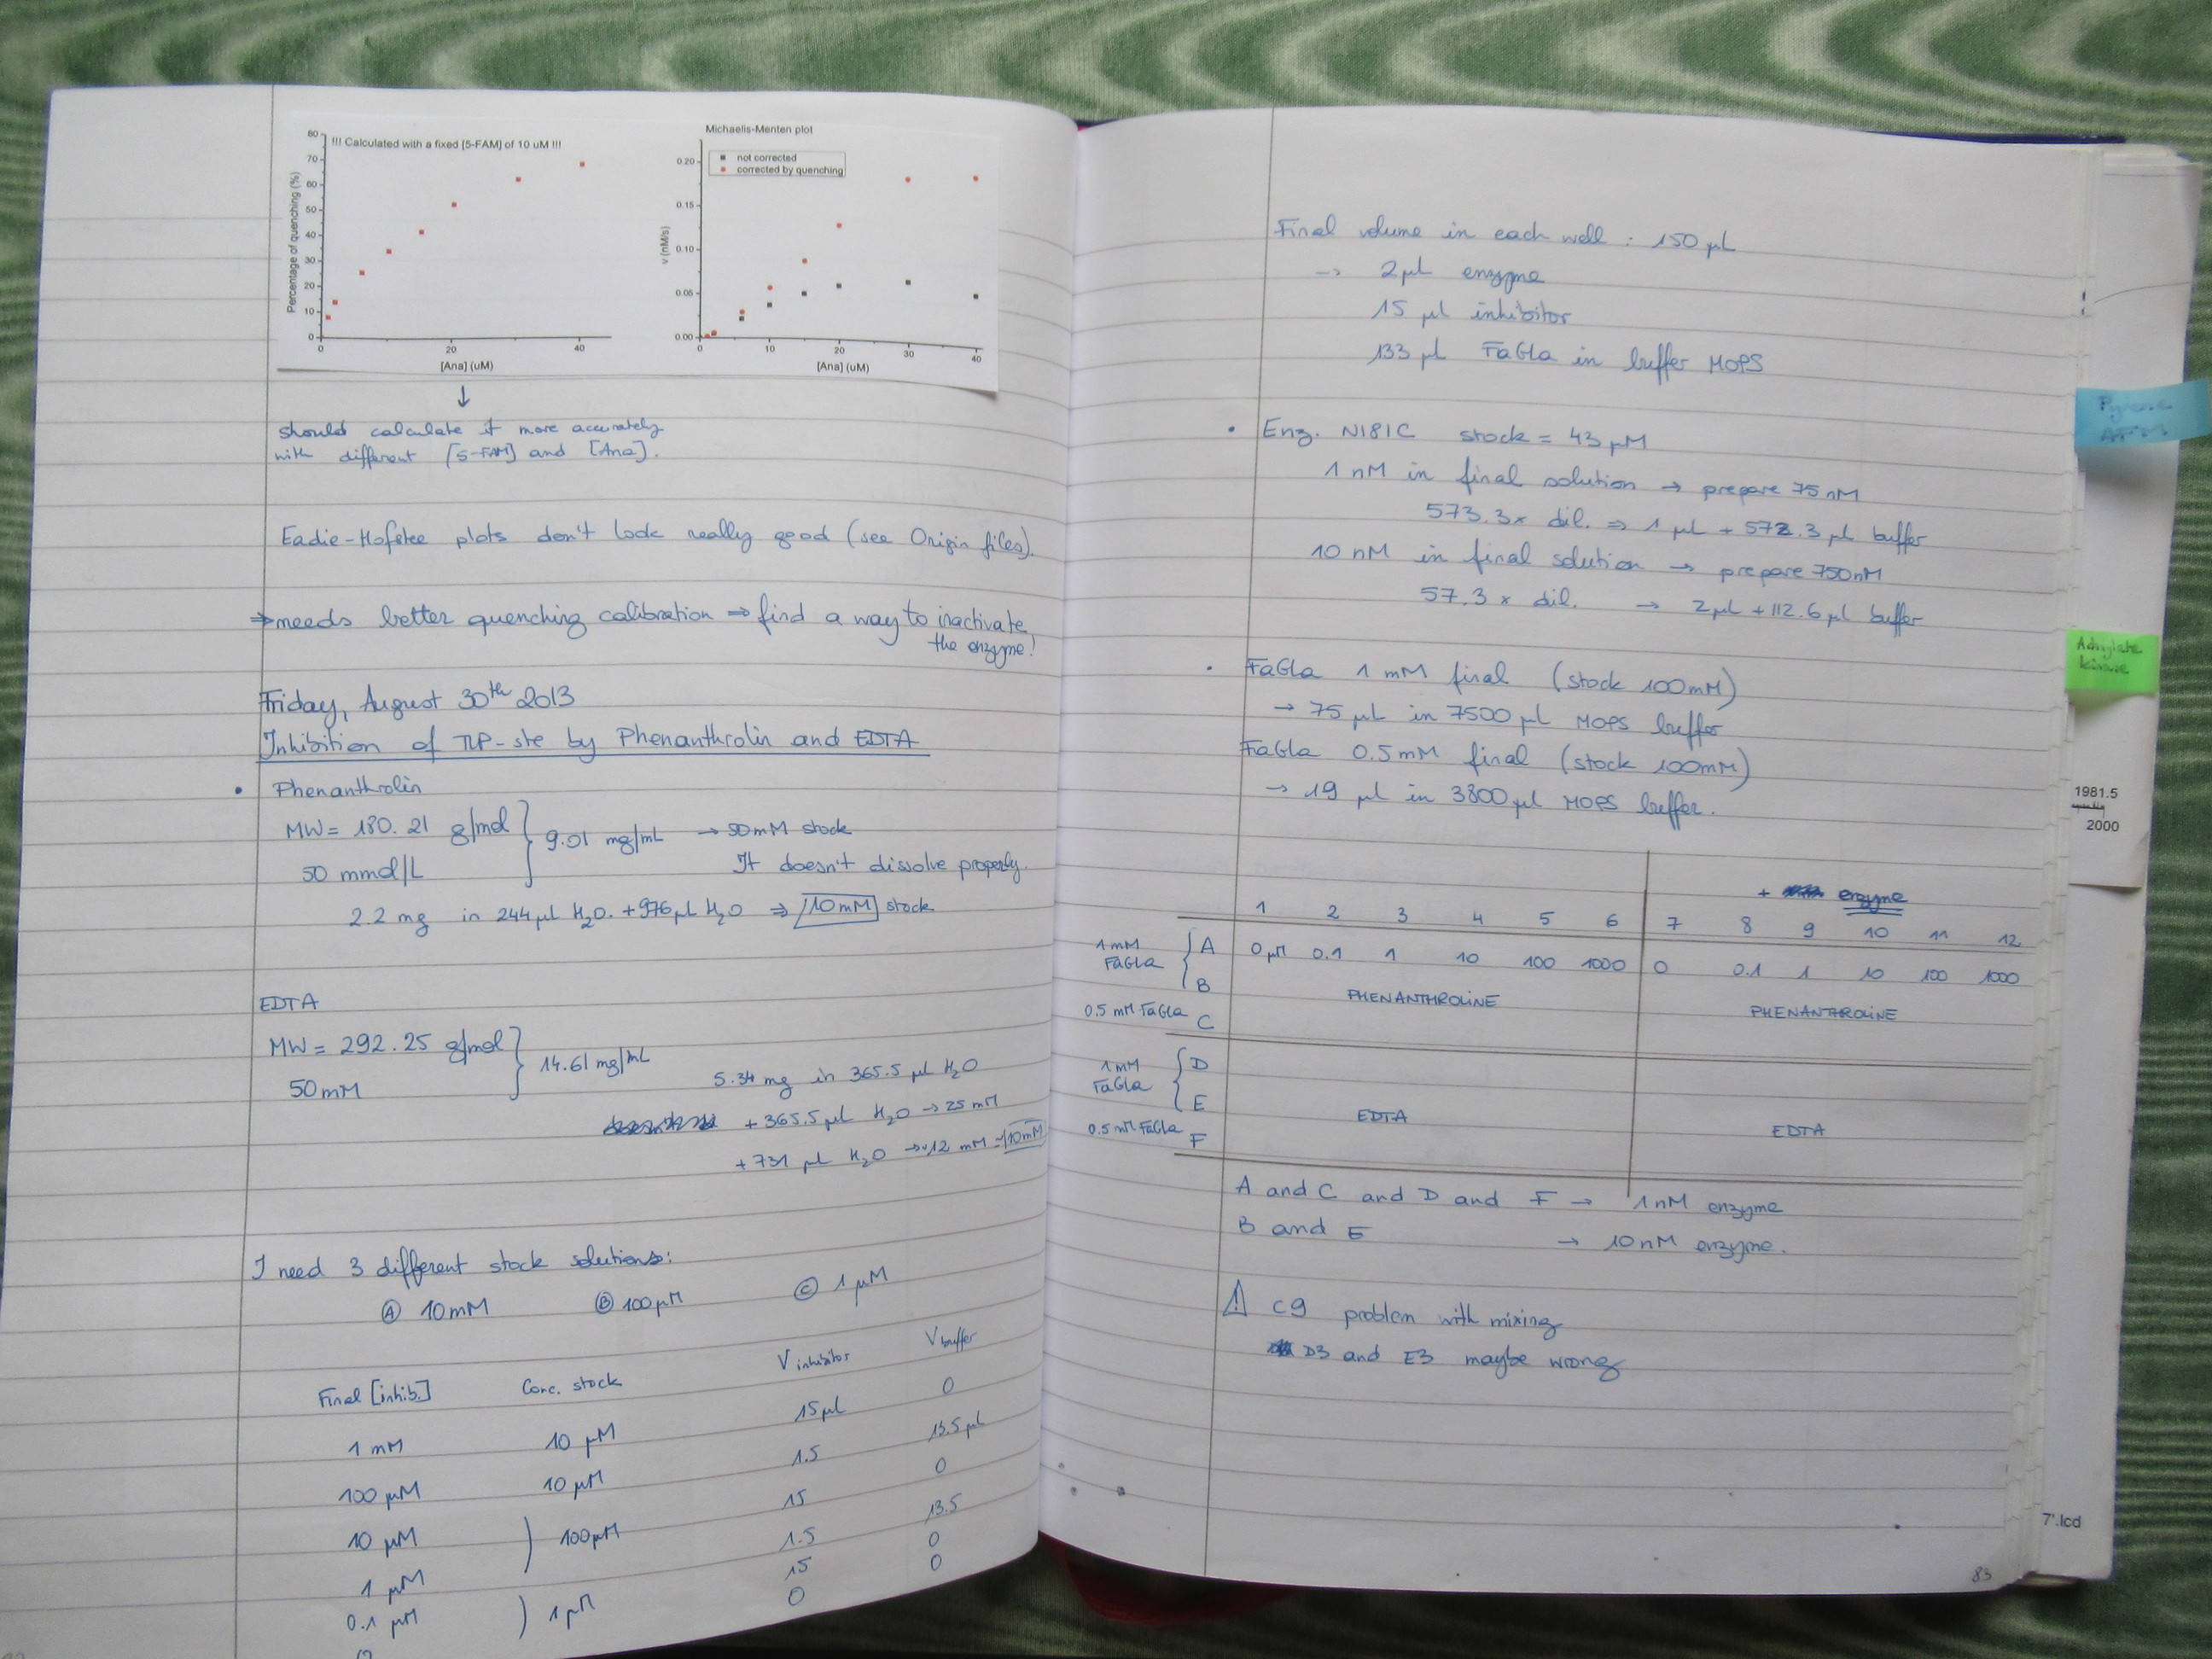 !!! Calculated with a fixed [5-FAM] of 10 uM !!!
Percentage of quenching (%)
80
70
60
50
40
30
20
10
0
0 20 40
[Ana] (uM)
Michaelis-Menten plot
not corrected
corrected by quenching
v (nM/s)
0.20
0.15
0.10
0.05
0.00
0 10 20 30 40
[Ana] (uM)
↓
should calculate it more accurately
with different [5-FAM] and [Ana].
Eadie-Hofstee plots don't look really good (see Origin files).
⇒ needs better quenching calibration ⇒ find a way to inactivate
the enzyme!
Friday, August 30th 2013
Inhibition of TLP-ste by Phenanthrolin and EDTA
• Phenanthrolin
MW = 180.21 g/mol } 9.01 mg/mL → 50 mM stock
50 mmol/L It doesn't dissolve properly.
2.2 mg in 244 µL H2O. + 976 µL H2O ⇒ 10 mM stock
EDTA
MW = 292.25 g/mol } 14.61 mg/mL
50 mM
5.34 mg in 365.5 µL H2O
+ 365.5 µL H2O → 25 mM
+ 731 µL H2O → ~12 mM → 10 mM
I need 3 different stock solutions:
Ⓐ 10 mM Ⓑ 100 µM Ⓒ 1 µM
Final [inhib.] Conc. stock V inhibitor V buffer
1 mM 10 µM 15 µL 0
100 µM 10 µM 1.5 13.5 µL
10 µM ) 100 µM 15 0
1 µM 1.5 13.5
0.1 µM ) 1 µM 15 0
0 0 0
Final volume in each well : 150 µL
→ 2 µL enzyme
15 µL inhibitor
133 µL FaGLa in buffer MOPS
• Enz. N181C stock = 43 µM
1 nM in final solution → prepare 75 nM
573.3x dil. ⇒ 1 µL + 572.3 µL buffer
10 nM in final solution → prepare 750 nM
57.3 x dil. → 2 µL + 112.6 µL buffer
• FaGLa 1 mM final (stock 100 mM)
→ 75 µL in 7500 µL MOPS buffer
FaGLa 0.5 mM final (stock 100 mM)
→ 19 µL in 3800 µL MOPS buffer.
+ enzyme
1 2 3 4 5 6 7 8 9 10 11 12
1 mM FaGLa { A 0 µM 0.1 1 10 100 1000 0 0.1 1 10 100 1000
B PHENANTHROLINE PHENANTHROLINE
0.5 mM FaGLa C
1 mM FaGLa { D
E EDTA EDTA
0.5 mM FaGLa F
A and C and D and F → 1 nM enzyme
B and E → 10 nM enzyme.
⚠ C9 problem with mixing
D3 and E3 maybe wrong
83
Adenylate
kinase
1981.5
2000
7'.lcd